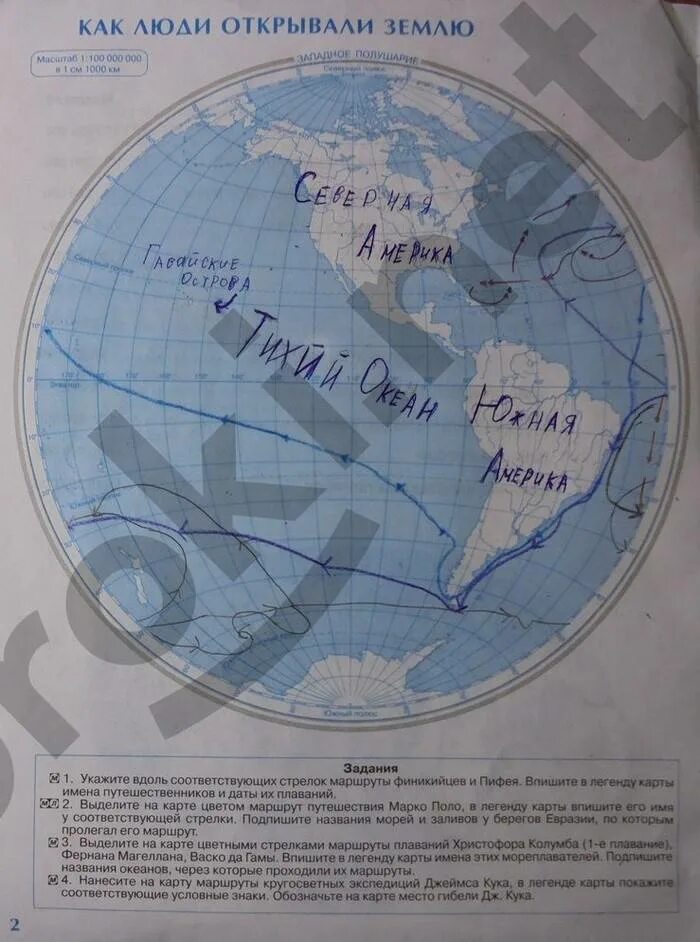 КАК ЛЮДИ ОТКРЫВАЛИ ЗЕМЛЮ
Масштаб 1:100 000 000
в 1 см 1000 км
ЗАПАДНОЕ ПОЛУШАРИЕ
Северный полюс
СЕВЕРНАЯ
АМЕРИКА
ГАВАЙСКИЕ
ОСТРОВА
ТИХИЙ ОКЕАН
ЮЖНАЯ
АМЕРИКА
Южный полюс
Задания
1. Укажите вдоль соответствующих стрелок маршруты финикийцев и Пифея. Впишите в легенду карты
имена путешественников и даты их плаваний.
2. Выделите на карте цветом маршрут путешествия Марко Поло, в легенду карты впишите его имя
у соответствующей стрелки. Подпишите названия морей и заливов у берегов Евразии, по которым
пролегал его маршрут.
3. Выделите на карте цветными стрелками маршруты плаваний Христофора Колумба (1-е плавание),
Фернана Магеллана, Васко да Гамы. Впишите в легенду карты имена этих мореплавателей. Подпишите
названия океанов, через которые проходили их маршруты.
4. Нанесите на карту маршруты кругосветных экспедиций Джеймса Кука, в легенде карты покажите
соответствующие условные знаки. Обозначьте на карте место гибели Дж. Кука.
2